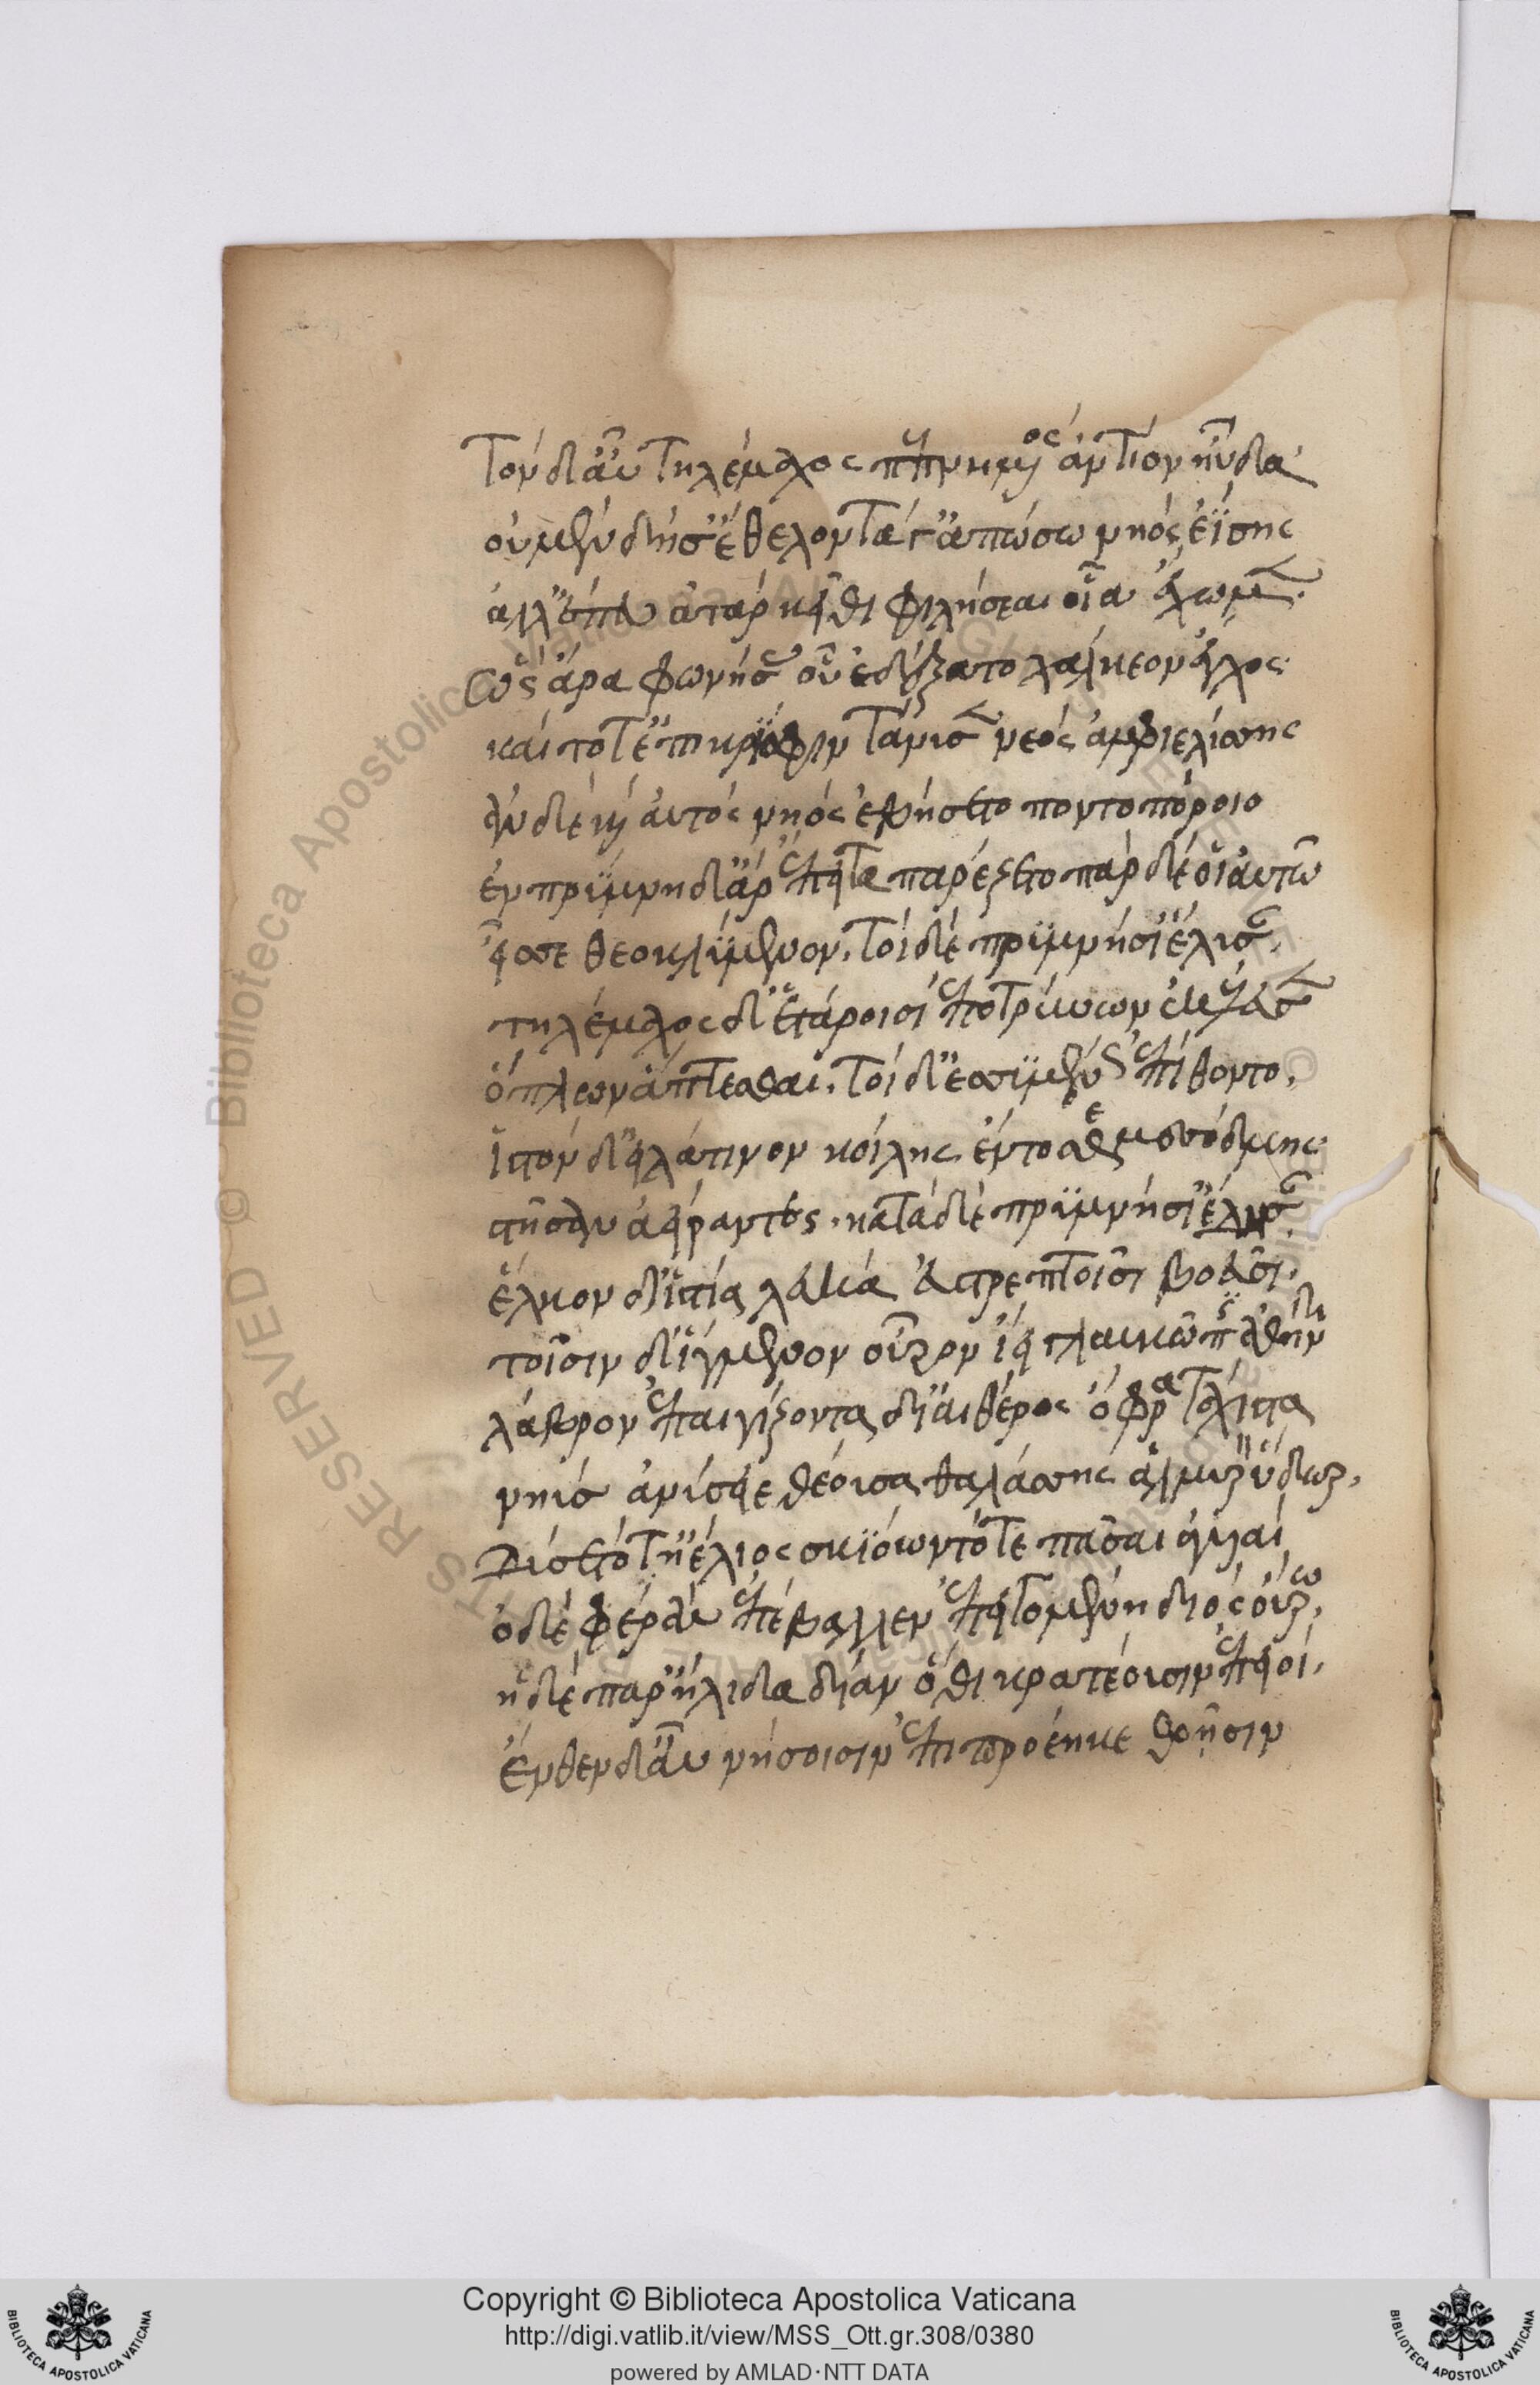 Τὸν δ' αὖ Τηλέμαχος πεπνυμένος ἀντίον ηὔδα
οὐ μὲν δή σ' ἐθέλοντά γ' ἀπώσω νηὸς ἐΐσης
ἀλλ' ἕπευ αὐτὰρ κεῖθι φιλήσεαι οἷα ἔχωμεν.
Ὣς ἄρα φωνήσας οἱ ἐδέξατο χάλκεον ἔγχος
καὶ τό γ' ἐπ' ἰκριόφιν τάνυσεν νεὸς ἀμφιελίσσης
ἂν δὲ καὶ αὐτὸς νηὸς ἐβήσετο ποντοπόροιο
ἐν πρύμνῃ δ' ἄρ' ἔπειτα παρέζετο πὰρ δὲ οἷ αὐτῷ
εἷσε Θεοκλύμενον. τοὶ δὲ πρυμνήσι' ἔλυσαν.
τηλέμαχος δ' ἑτάροισι ἐποτρύνων ἐκέλευσεν
ὅπλων ἅπτεσθαι. τοὶ δ' ἐσσυμένως ἐπίθοντο.
ἱστὸν δ' εἰλάτινον κοίλης ἔντοσθε μεσόδμης
στῆσαν ἀείραντες. κατὰ δὲ πρυμνήσι' ἔδησαν.
ἕλκον δ' ἱστία λευκὰ εὐστρεπτοῖσι βοεῦσι.
τοῖσιν δ' ἴκμενον οὖρον ἵει γλαυκῶπις ἀθήνη
λάβρον ἐπαιγίζοντα δι' αἰθέρος ὄφρα τάχιστα
νηῦς ἀνύσειε θέουσα θαλάσσης ἁλμυρὸν ὕδωρ.
Δύσετό τ' ἠέλιος σκιόωντό τε πᾶσαι ἀγυιαὶ
ὁ δὲ φέρας ἐπέβαλλεν ἐπειγομένη διὸς οὔρῳ.
ἠδὲ παρ' ἤλιδα δῖαν ὅθι κρατέουσιν ἐπειοί.
ἔνθεν δ' αὖ νήσοισιν ἐπιπροέηκε θοῇσιν
Copyright © Biblioteca Apostolica Vaticana
http://digi.vatlib.it/view/MSS_Ott.gr.308/0380
powered by AMLAD·NTT DATA